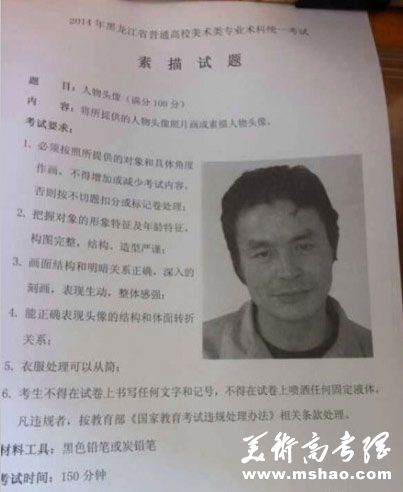 2014年黑龙江省普通高校美术类专业术科统一考试
素描试题
题 目:人物头像(满分100分)
内 容:将所提供的人物头像照片画成素描人物头像。
考试要求:
1、必须按照所提供的对象和具体角度
作画,不得增加或减少考试内容,
否则按不切题扣分或标记卷处理;
2、把握对象的形象特征及年龄特征,
构图完整,结构、造型严谨;
3、画面结构和明暗关系正确,深入的
刻画,表现生动,整体感强;
4、能正确表现头像的结构和体面转折
关系;
5、衣服处理可以从简;
6、考生不得在试卷上书写任何文字和记号,不得在试卷上喷洒任何固定液体。
凡违规者,按教育部《国家教育考试违规处理办法》相关条款处理。
材料工具:黑色铅笔或炭铅笔
考试时间:150分钟
美術高考網
www.mshao.com